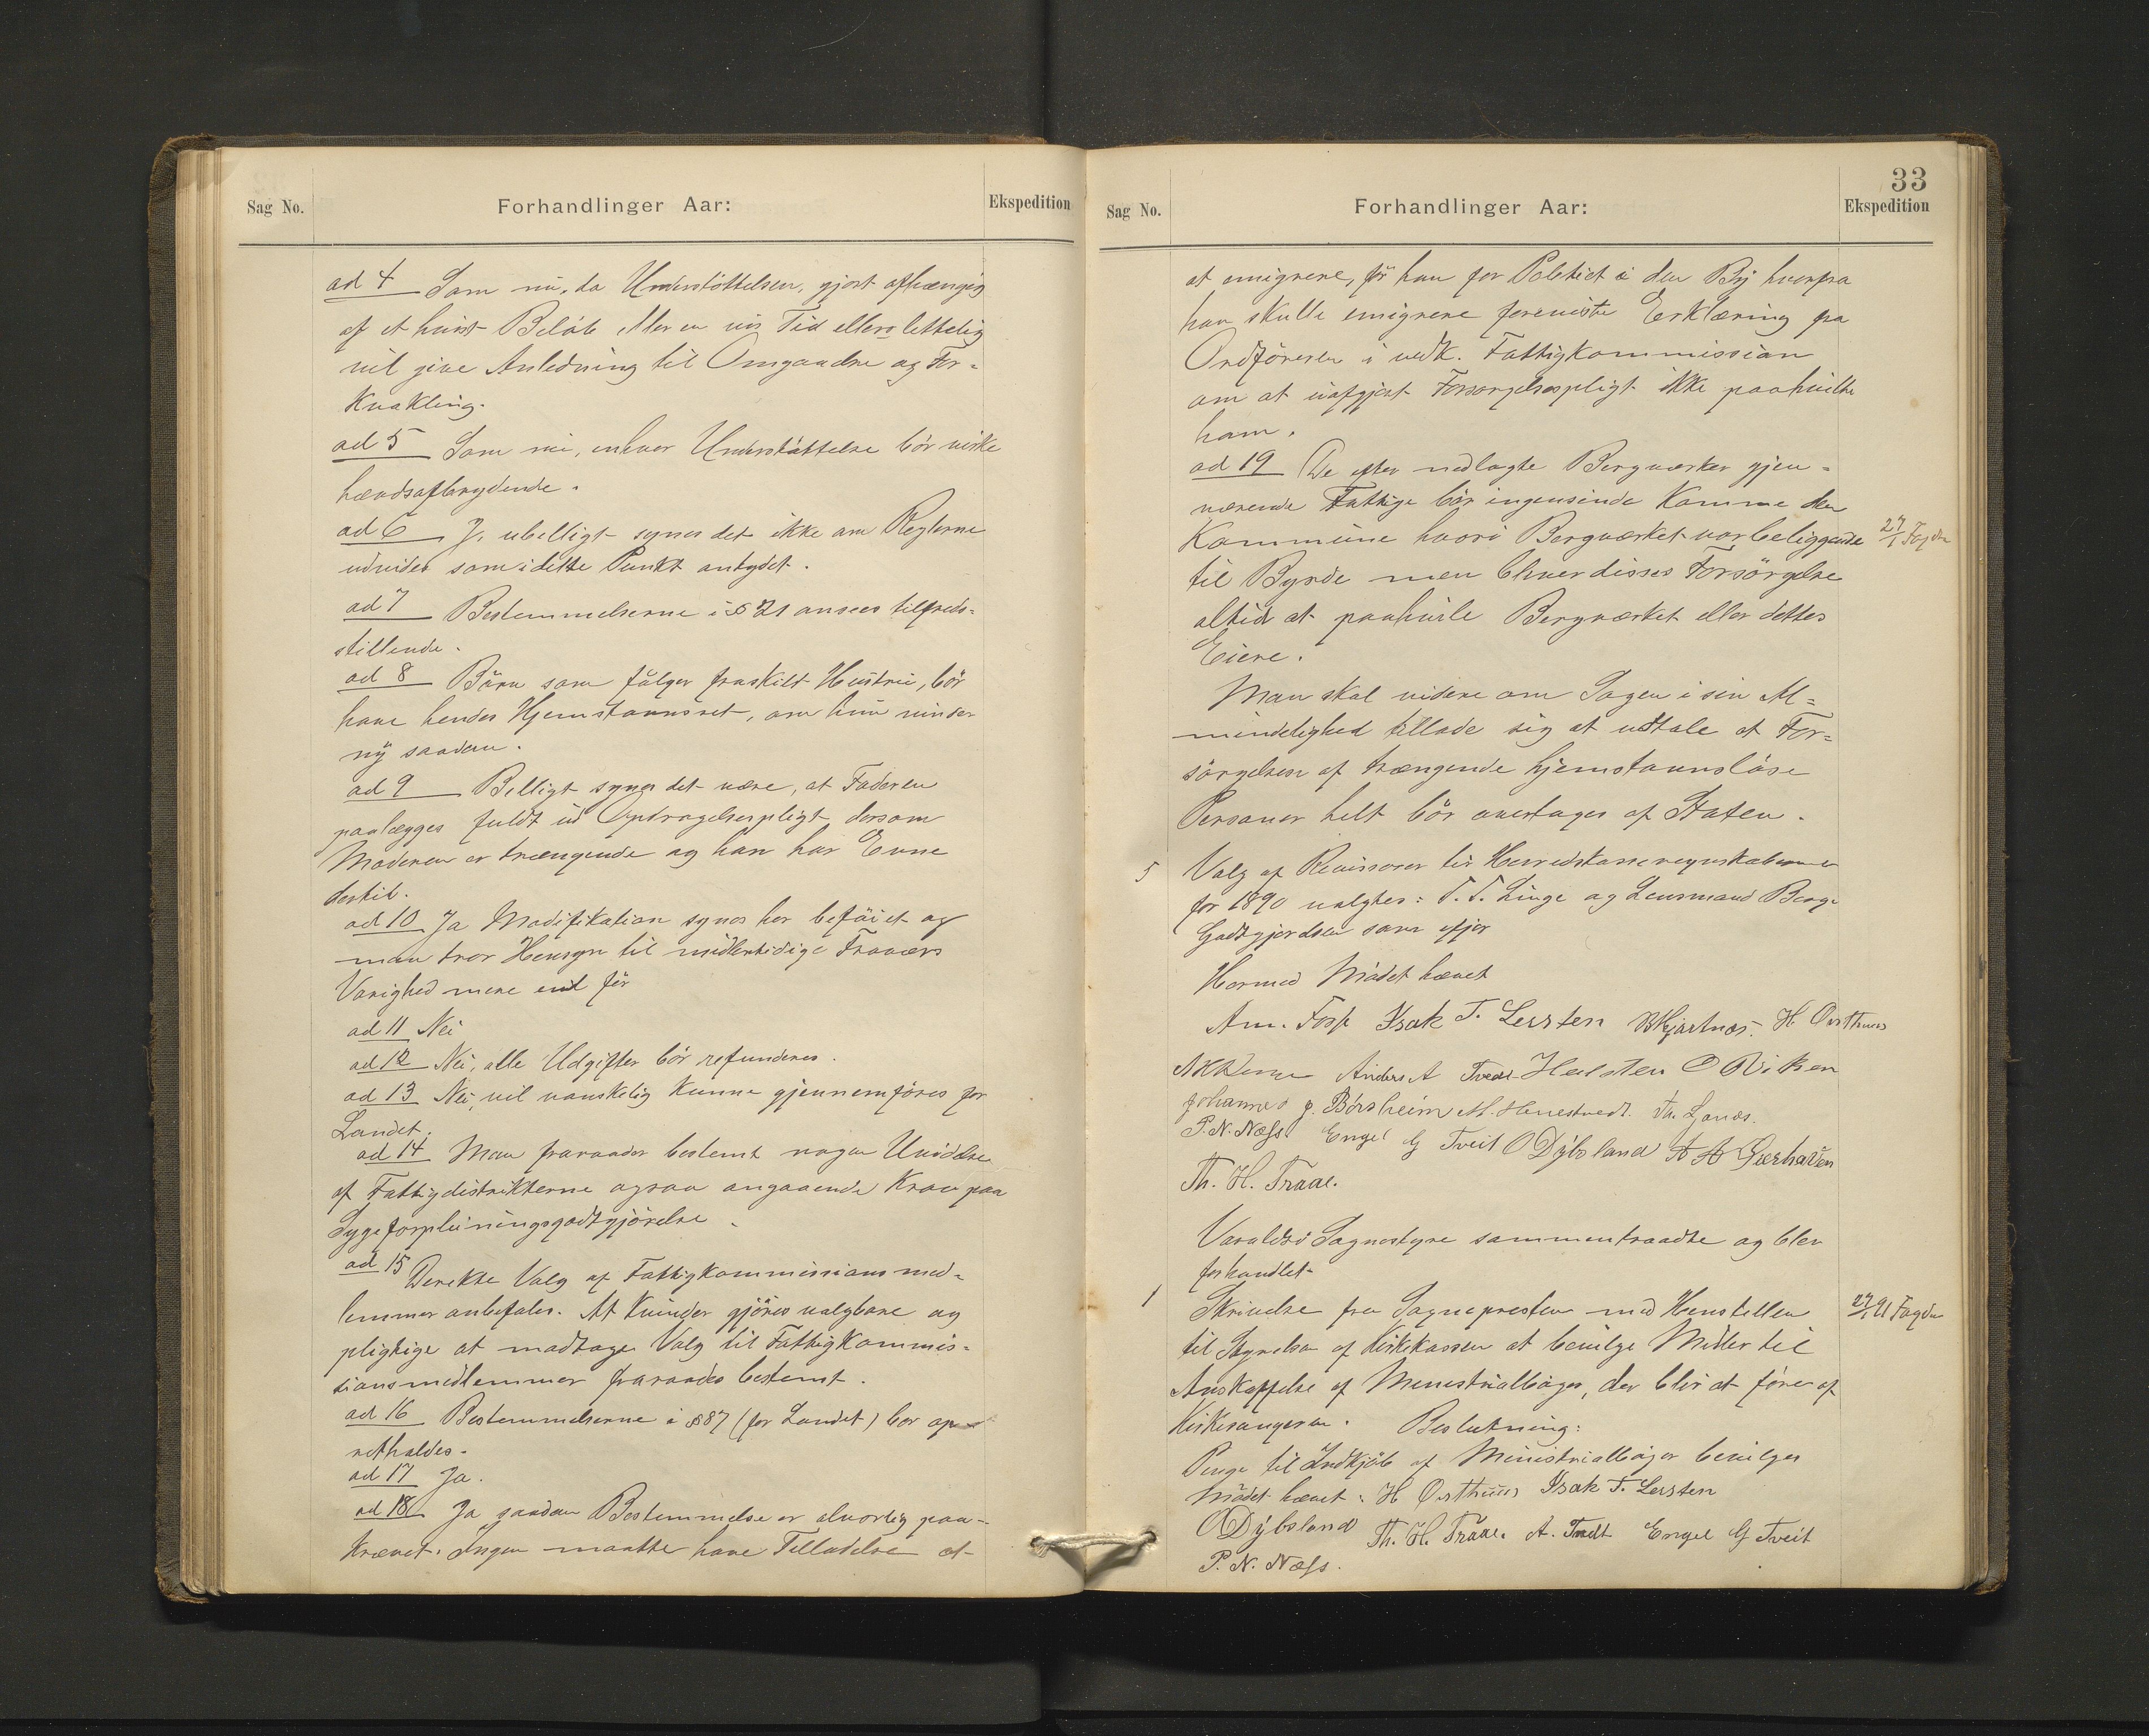 Sag No.
Forhandlinger Aar:
Ekspedition
ad 4 Som nu, da Understöttelsen, gjort afhængig
af et hvist Beløb eller en vis Tid ellers lettelig
vil give Anledning til Omgaaelse og For-
Knakling.
ad 5 Som nu, enhver Understöttelse bör virke
hævdsafbrydende.
ad 6 J. ubilligt synes det ikke om Reglerne
udvides som i dette Punkt antydet.
ad 7 Bestemmelserne i § 21 ansees tilfreds-
stillende.
ad 8 Börn som fölger fraskilt Hustru, bör
have hendes Hjemstavnsret, om hun vinder
ny saadan.
ad 9 Billigt synes det være, at Faderen
paalægges fuldt ud Opdragelsespligt dersom
Moderen er trængende og han har Evne
dertil.
ad 10 Ja Modifikation synes her beföiet og
man tror Hensyn til midlertidige Fraværs
Varighed mere end för
ad 11 Nei
ad 12 Nei, alle Udgifter bör refunderes.
ad 13 Nei, vil vanskelig kunne gjennemföres for
Landet.
ad 14 Man fraraader bestemt nogen Uvidelse
af Fattigdistrikterne ogsaa angaaende Krav paa
Sygeforpleiningsgodtgjörelse.
ad 15 Derekte Valg af Fattigkommissionsmed-
lemmer anbefales. At Kvinder gjöres valgbare og
pligtige at modtage Valg til Fattigkommis-
sionsmedlemmer fraraades bestemt.
ad 16 Bestemmelserne i § 87 (for Landet) bør op-
retholdes.
ad 17 Ja.
ad 18 Ja saadan Bestemmelse er alvorlig paa-
krævet. Ingen maatte have Tilladelse at
33
Sag No.
Forhandlinger Aar:
Ekspedition
at emigrere, för han for Politiet i den By hvorfra
han skulle emigrere foreviste Erklæring fra
Ordföreren i vedk. Fattigkommission
om at uafgjort Forsorgelsespligt ikke paahvilte
ham.
ad 19 De efter nedlagte Bergværker gjen-
værende Fattige bör ingensinde komme den
Kommune hvori Bergværket var beliggende
27/1 Fogden
til Byrde men bliver disses Forsörgelse
altid at paahvile Bergværket eller dettes
Eiere.
Man skal videre om Sagen i sin Al-
mindelighed tillade sig at udtale at For-
sörgelsen af trængende hjemstavnslöse
Personer helt bör overtages af Staten.
5 Valg af Revisorer til Herredskasseregnskaberne
for 1890 valgtes: T. T. Linge og Lensmand Berge
Godtgjordelse som ifjor
Hermed Mödet hævet
Am. Fosse Isak T. Lersten H. Østhuus
Anders A Tvedt Helsten O Viken
Johannes J. Börsheim M. Henestvedt. Th. Lönes.
P. N. Næss. Engel G Tveit O Dybsland A A Gjerhaven
Th. H. Traae.
Varaldsö Sognestyre sammentraadte og blev
forhandlet
1 Skrivelse fra Sognepresten med Henstillen
27/1 91 Fogden
til Styrelsen af Kirkekassen at bevilge Midler til
Anskaffelse af Menestrialböger, der blir at føres af
Kirkesangeren. Beslutning:
Penge til Indkjöb af Ministrialböger bevilges
Mödet hævet: H Østhuus Isak T. Lersten
O Dybsland Th. H. Traae. A. Tvedt Engel G Tveit
P. N. Næss.